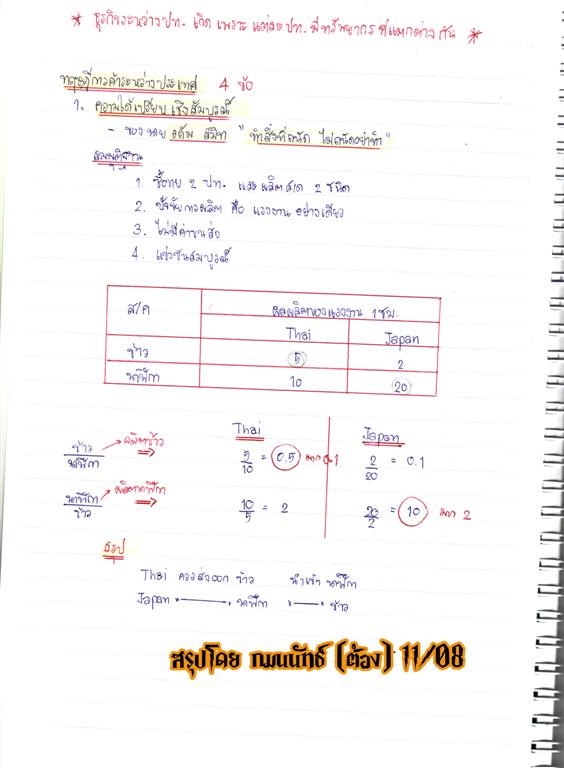 * ธุรกิจระหว่างปท. เกิดเพราะ แต่ละปท. มีทรัพยากรที่แตกต่างกัน *
ทฤษฎีการค้าระหว่างประเทศ 4 ข้อ
1. ความได้เปรียบเชิงสัมบูรณ์
- ของนาย อดัม สมิท "ทำสิ่งที่ถนัด ไม่ถนัดอย่าทำ"
สมมุติฐาน
1. ซื้อขาย 2 ปท. และผลิต ส/ค 2 ชนิด
2. ปัจจัยการผลิต คือ แรงงานอย่างเดียว
3. ไม่มีค่าขนส่ง
4. แข่งขันสมบูรณ์
ส/ค ผลผลิตของแรงงาน 1 ชม.
Thai Japan
ข้าว 5 2
นาฬิกา 10 20
Thai Japan
ข้าว/นาฬิกา ผลิตข้าว ⇒ 5/10 = 0.5 มาก 0.1 2/20 = 0.1
นาฬิกา/ข้าว ผลิตนาฬิกา ⇒ 10/5 = 2 20/2 = 10 มาก 2
สรุป
Thai ควรส่งออก ข้าว นำเข้า นาฬิกา
Japan นาฬิกา ข้าว
สรุปโดย (ต้อง) 11/08